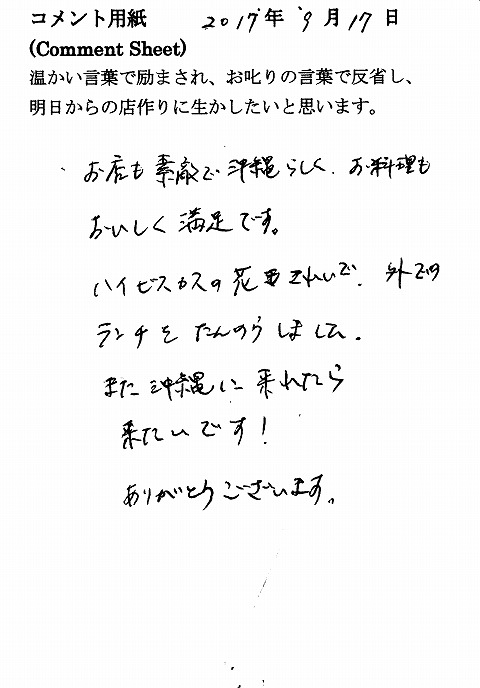 コメント用紙 2017年 9月 17日
(Comment Sheet)
温かい言葉で励まされ、お叱りの言葉で反省し、
明日からの店作りに生かしたいと思います。
お店も素敵で沖縄らしく、お料理も
おいしく満足です。
ハイビスカスの花もきれいで、外での
ランチをたんのうしました。
また沖縄に来れたら
来たいです!
ありがとうございます。